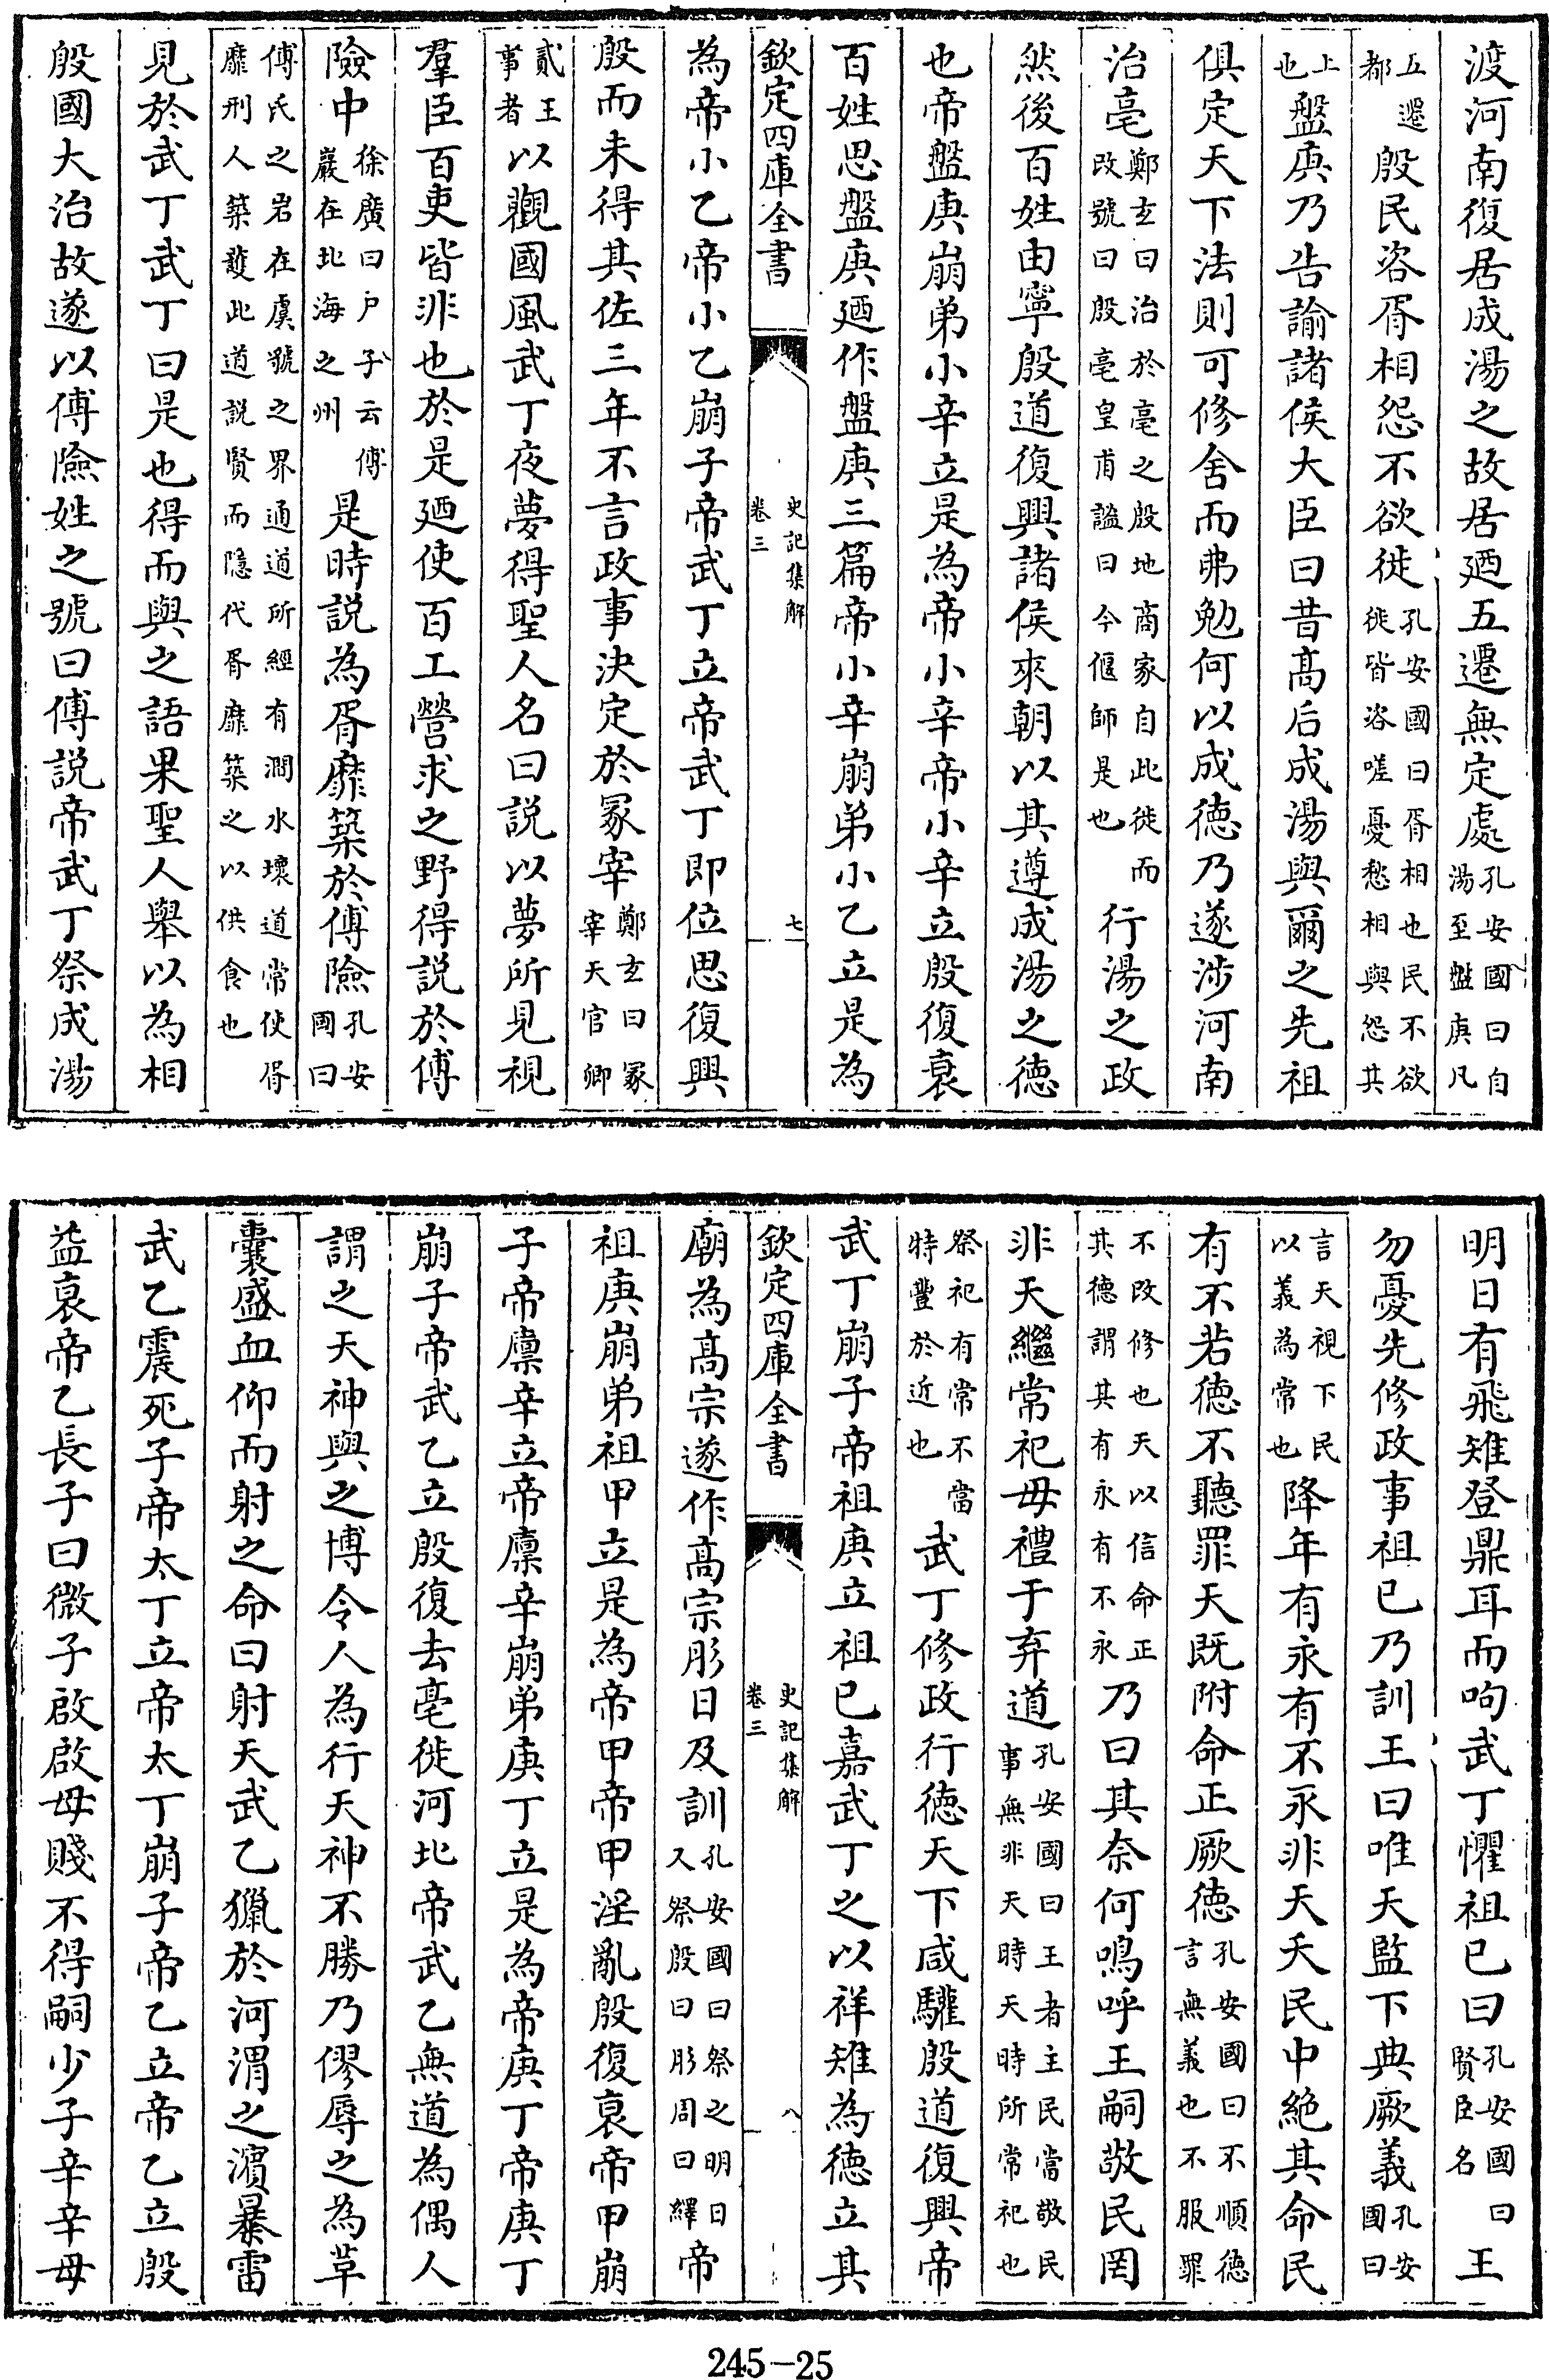 渡河南復居成湯之故居廼五遷無定處孔安國曰自湯至盤庚凡
五遷都殷民咨胥相怨不欲徙孔安國曰胥相也民不欲徙皆咨嗟憂愁相與怨其
上也盤庚乃告諭諸侯大臣曰昔高后成湯與爾之先祖
俱定天下法則可修舍而弗勉何以成徳乃遂涉河南
治亳鄭玄曰治於亳之殷地商家自此徙而改號曰殷亳皇甫謐曰今偃師是也行湯之政
然後百姓由寧殷道復興諸侯來朝以其遵成湯之徳
也帝盤庚崩弟小辛立是為帝小辛帝小辛立殷復衰
百姓思盤庚廼作盤庚三篇帝小辛崩弟小乙立是為
欽定四庫全書 史記集解卷三 七
為帝小乙帝小乙崩子帝武丁立帝武丁即位思復興
殷而未得其佐三年不言政事決定於冢宰鄭玄曰冢宰天官卿
貳王事者以觀國風武丁夜夢得聖人名曰説以夢所見視
羣臣百吏皆非也於是廼使百工營求之野得説於傅
險中徐廣曰尸子云傅巖在北海之州是時説為胥靡築於傅險孔安國曰
傅氏之岩在虞虢之界通道所經有澗水壞道常使胥靡刑人築護此道説賢而隠代胥靡築之以供食也
見於武丁武丁曰是也得而與之語果聖人舉以為相
殷國大治故遂以傅險姓之號曰傅説帝武丁祭成湯
明日有飛雉登鼎耳而呴武丁懼祖已曰孔安國曰賢臣名王
勿憂先修政事祖已乃訓王曰唯天監下典厥義孔安國曰
言天視下民以義為常也降年有永有不永非天夭民中絶其命民
有不若徳不聽罪天既附命正厥徳孔安國曰不順徳言無義也不服罪
不改修也天以信命正其德謂其有永有不永乃曰其奈何嗚呼王嗣敬民罔
非天繼常祀毋禮于弃道孔安國曰王者主民當敬民事無非天時天時所常祀也
祭祀有常不當特豐於近也武丁修政行徳天下咸驩殷道復興帝
武丁崩子帝祖庚立祖已嘉武丁之以祥雉為徳立其
欽定四庫全書 史記集解卷三 八
廟為高宗遂作高宗肜日及訓孔安國曰祭之明日又祭殷曰肜周曰繹帝
祖庚崩弟祖甲立是為帝甲帝甲淫亂殷復衰帝甲崩
子帝廩辛立帝廩辛崩弟庚丁立是為帝庚丁帝庚丁
崩子帝武乙立殷復去亳徙河北帝武乙無道為偶人
謂之天神與之博令人為行天神不勝乃僇辱之為革
囊盛血仰而射之命曰射天武乙獵於河渭之濵暴雷
武乙震死子帝太丁立帝太丁崩子帝乙立帝乙立殷
益衰帝乙長子曰微子啟啟母賤不得嗣少子辛辛母
245-25